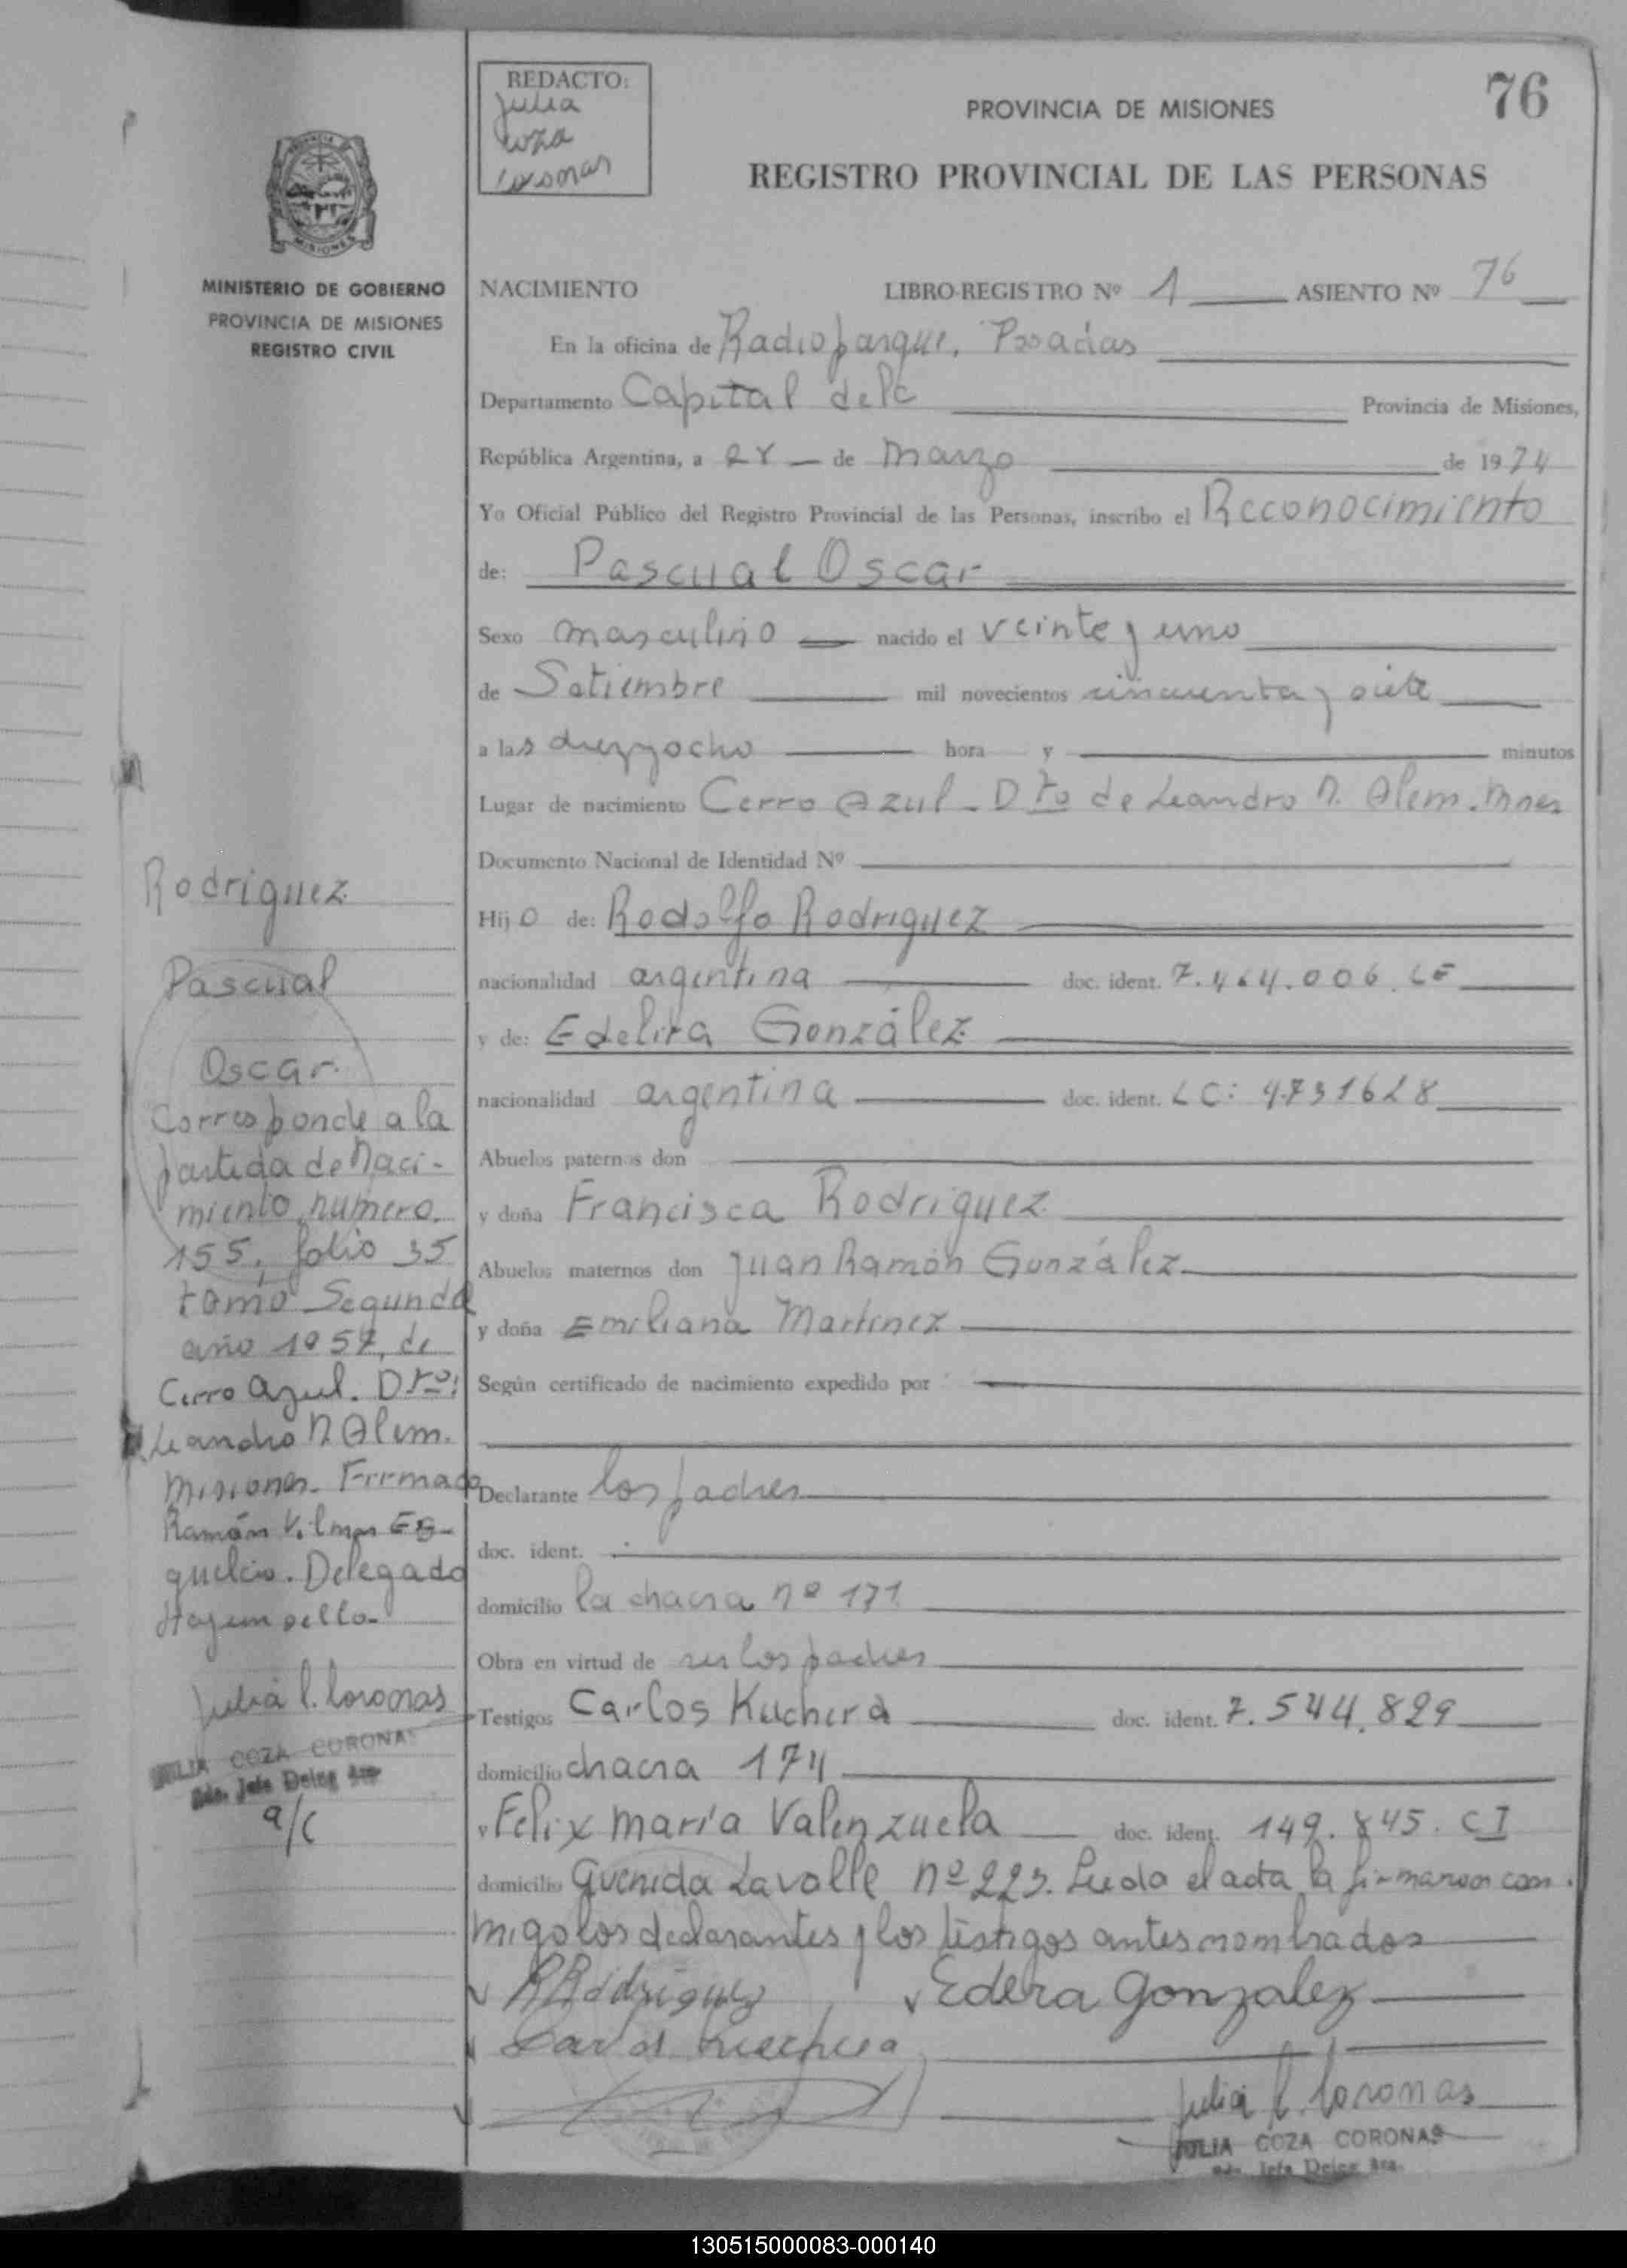 REDACTO:
Julia
Coza
Coronas
76
PROVINCIA DE MISIONES
REGISTRO PROVINCIAL DE LAS PERSONAS
MISIONES
MINISTERIO DE GOBIERNO
PROVINCIA DE MISIONES
REGISTRO CIVIL
NACIMIENTO LIBRO-REGISTRO Nº 1 ASIENTO Nº 76
En la oficina de Radioparque, Posadas
Departamento Capital de la Provincia de Misiones,
República Argentina, a de Marzo de 1974
Yo Oficial Público del Registro Provincial de las Personas, inscribo el Reconocimiento
de: Pascual Oscar
Sexo masculino nacido el veinte y uno
de Setiembre mil novecientos cincuenta y siete
a las diez y ocho hora y minutos
Lugar de nacimiento Cerro Azul - Dto de Leandro N. Alem. Mnes
Documento Nacional de Identidad Nº
Hijo de: Rodolfo Rodriguez
nacionalidad argentina doc. ident. 7.464.006 LE
y de: Edelira González
nacionalidad argentina doc. ident. LC: 4731628
Abuelos paternos don
y doña Francisca Rodriguez
Abuelos maternos don Juan Ramón González
y doña Emiliana Martinez
Según certificado de nacimiento expedido por
Declarante los padres
doc. ident.
domicilio la chacra nº 171
Obra en virtud de ser los padres
Testigos Carlos Kuchera doc. ident. 7.544.829
domicilio chacra 174
y Felix maria Valenzuela doc. ident. 149.845. CI
domicilio avenida Lavalle nº 223. Leida el acta la firmaron con
migo los declarantes y los testigos antes nombrados
R Rodriguez Edera Gonzalez
Carlos Kuchera
Julia C. Coronas
JULIA COZA CORONAS
Jefe Deleg
Rodriguez
Pascual
Oscar
Corresponde a la
partida de Naci-
miento numero
155, folio 35
tomo Segundo
año 1957, de
Cerro Azul. Dto:
Leandro N Alem.
Misiones. Firmado
Ramón
Delegado
Hay un sello-
Julia C. Coronas
JULIA COZA CORONAS
Jefe Deleg
a/c
130515000083-000140